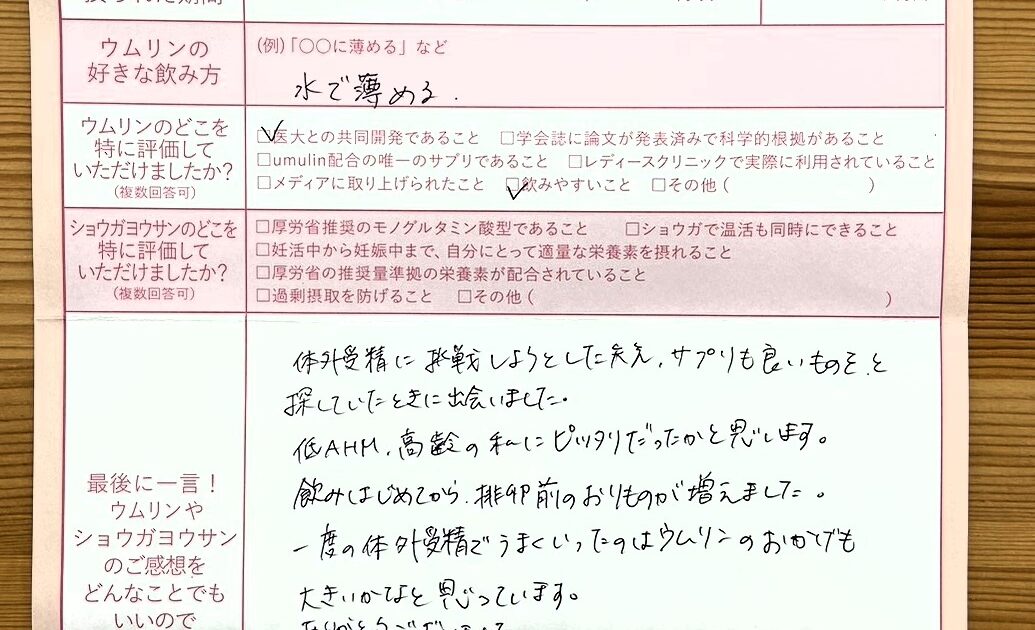 ウムリンの
好きな飲み方
(例)「〇〇に薄める」など
水で薄める.
ウムリンのどこを
特に評価して
いただけましたか?
(複数回答可)
□医大との共同開発であること □学会誌に論文が発表済みで科学的根拠があること
□umulin配合の唯一のサプリであること □レディースクリニックで実際に利用されていること
□メディアに取り上げられたこと □飲みやすいこと □その他( )
ショウガヨウサンのどこを
特に評価して
いただけましたか?
(複数回答可)
□厚労省推奨のモノグルタミン酸型であること □ショウガで温活も同時にできること
□妊活中から妊娠中まで、自分にとって適量な栄養素を摂れること
□厚労省の推奨量準拠の栄養素が配合されていること
□過剰摂取を防げること □その他( )
最後に一言!
ウムリンや
ショウガヨウサン
のご感想を
どんなことでも
いいので
体外受精に挑戦しようとした矢先、サプリも良いものを、と
探していたときに出会いました。
低AHM、高齢の私にピッタリだったかと思います。
飲みはじめてから、排卵前のおりものが増えました。
一度の体外受精でうまくいったのはウムリンのおかげも
大きいかなと思っています。